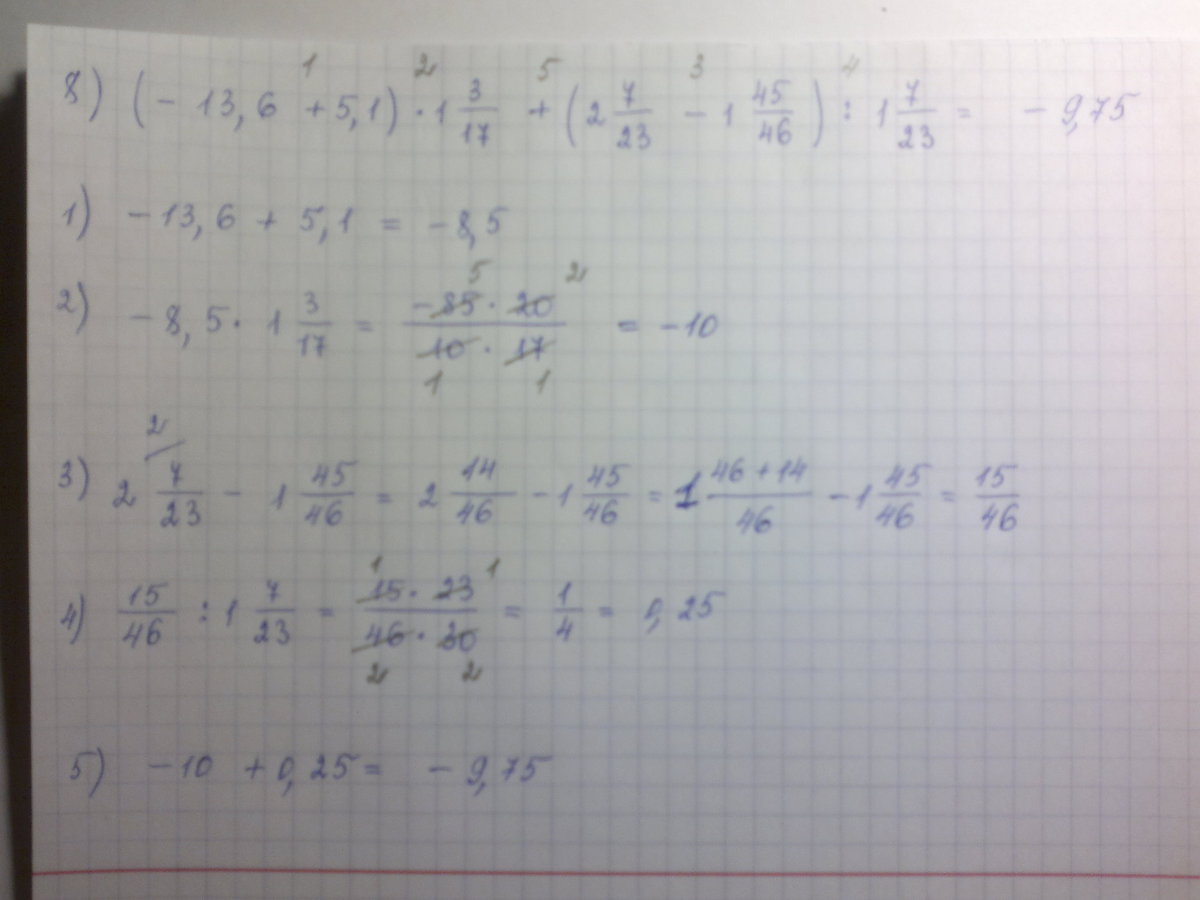 1 2 5 3 4
8) (- 13,6 + 5,1) · 1 3/17 + (2 7/23 - 1 45/46) : 1 7/23 = - 9,75
1) - 13,6 + 5,1 = - 8,5
5 2
2) - 8,5 · 1 3/17 = -85 · 20 / 10 · 17 = - 10
1 1
2
3) 2 7/23 - 1 45/46 = 2 14/46 - 1 45/46 = 1 46 + 14 / 46 - 1 45/46 = 15/46
1 1
4) 15/46 : 1 7/23 = 15 · 23 / 46 · 30 = 1/4 = 0,25
2 2
5) - 10 + 0,25 = - 9,75